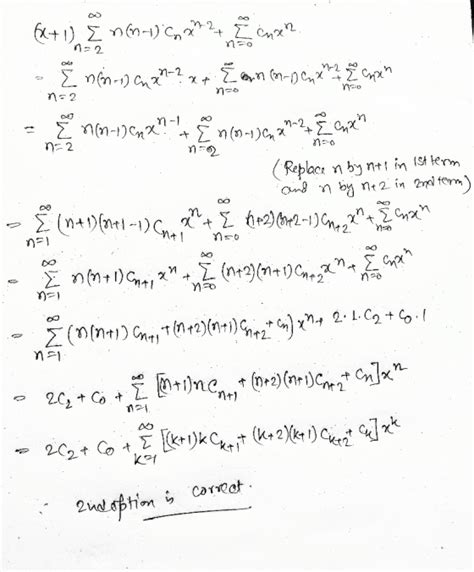 (x+1) ∞Σn=2 n(n-1) Cn x^n-2 + ∞Σn=0 Cn x^n
= ∞Σn=2 n(n-1) Cn x^n-2 · x + ∞Σn=0 n(n-1) Cn x^n-2 + ∞Σn=0 Cn x^n
= ∞Σn=2 n(n-1) Cn x^n-1 + ∞Σn=2 n(n-1) Cn x^n-2 + ∞Σn=0 Cn x^n
(Replace n by n+1 in 1st term
and n by n+2 in 2nd term)
= ∞Σn=1 (n+1)(n+1-1) Cn+1 x^n + ∞Σn=0 (n+2)(n+2-1) Cn+2 x^n + ∞Σn=0 Cn x^n
= ∞Σn=1 n(n+1) Cn+1 x^n + ∞Σn=0 (n+2)(n+1) Cn+2 x^n + ∞Σn=0 Cn x^n
= ∞Σn=1 (n(n+1) Cn+1 + (n+2)(n+1) Cn+2 + Cn) x^n + 2·1·C2 + C0·1
= 2C2 + C0 + ∞Σn=1 [(n+1)n Cn+1 + (n+2)(n+1) Cn+2 + Cn] x^n
= 2C2 + C0 + ∞Σk=1 [(k+1)k Ck+1 + (k+2)(k+1) Ck+2 + Ck] x^k
∴ 2nd option is correct.